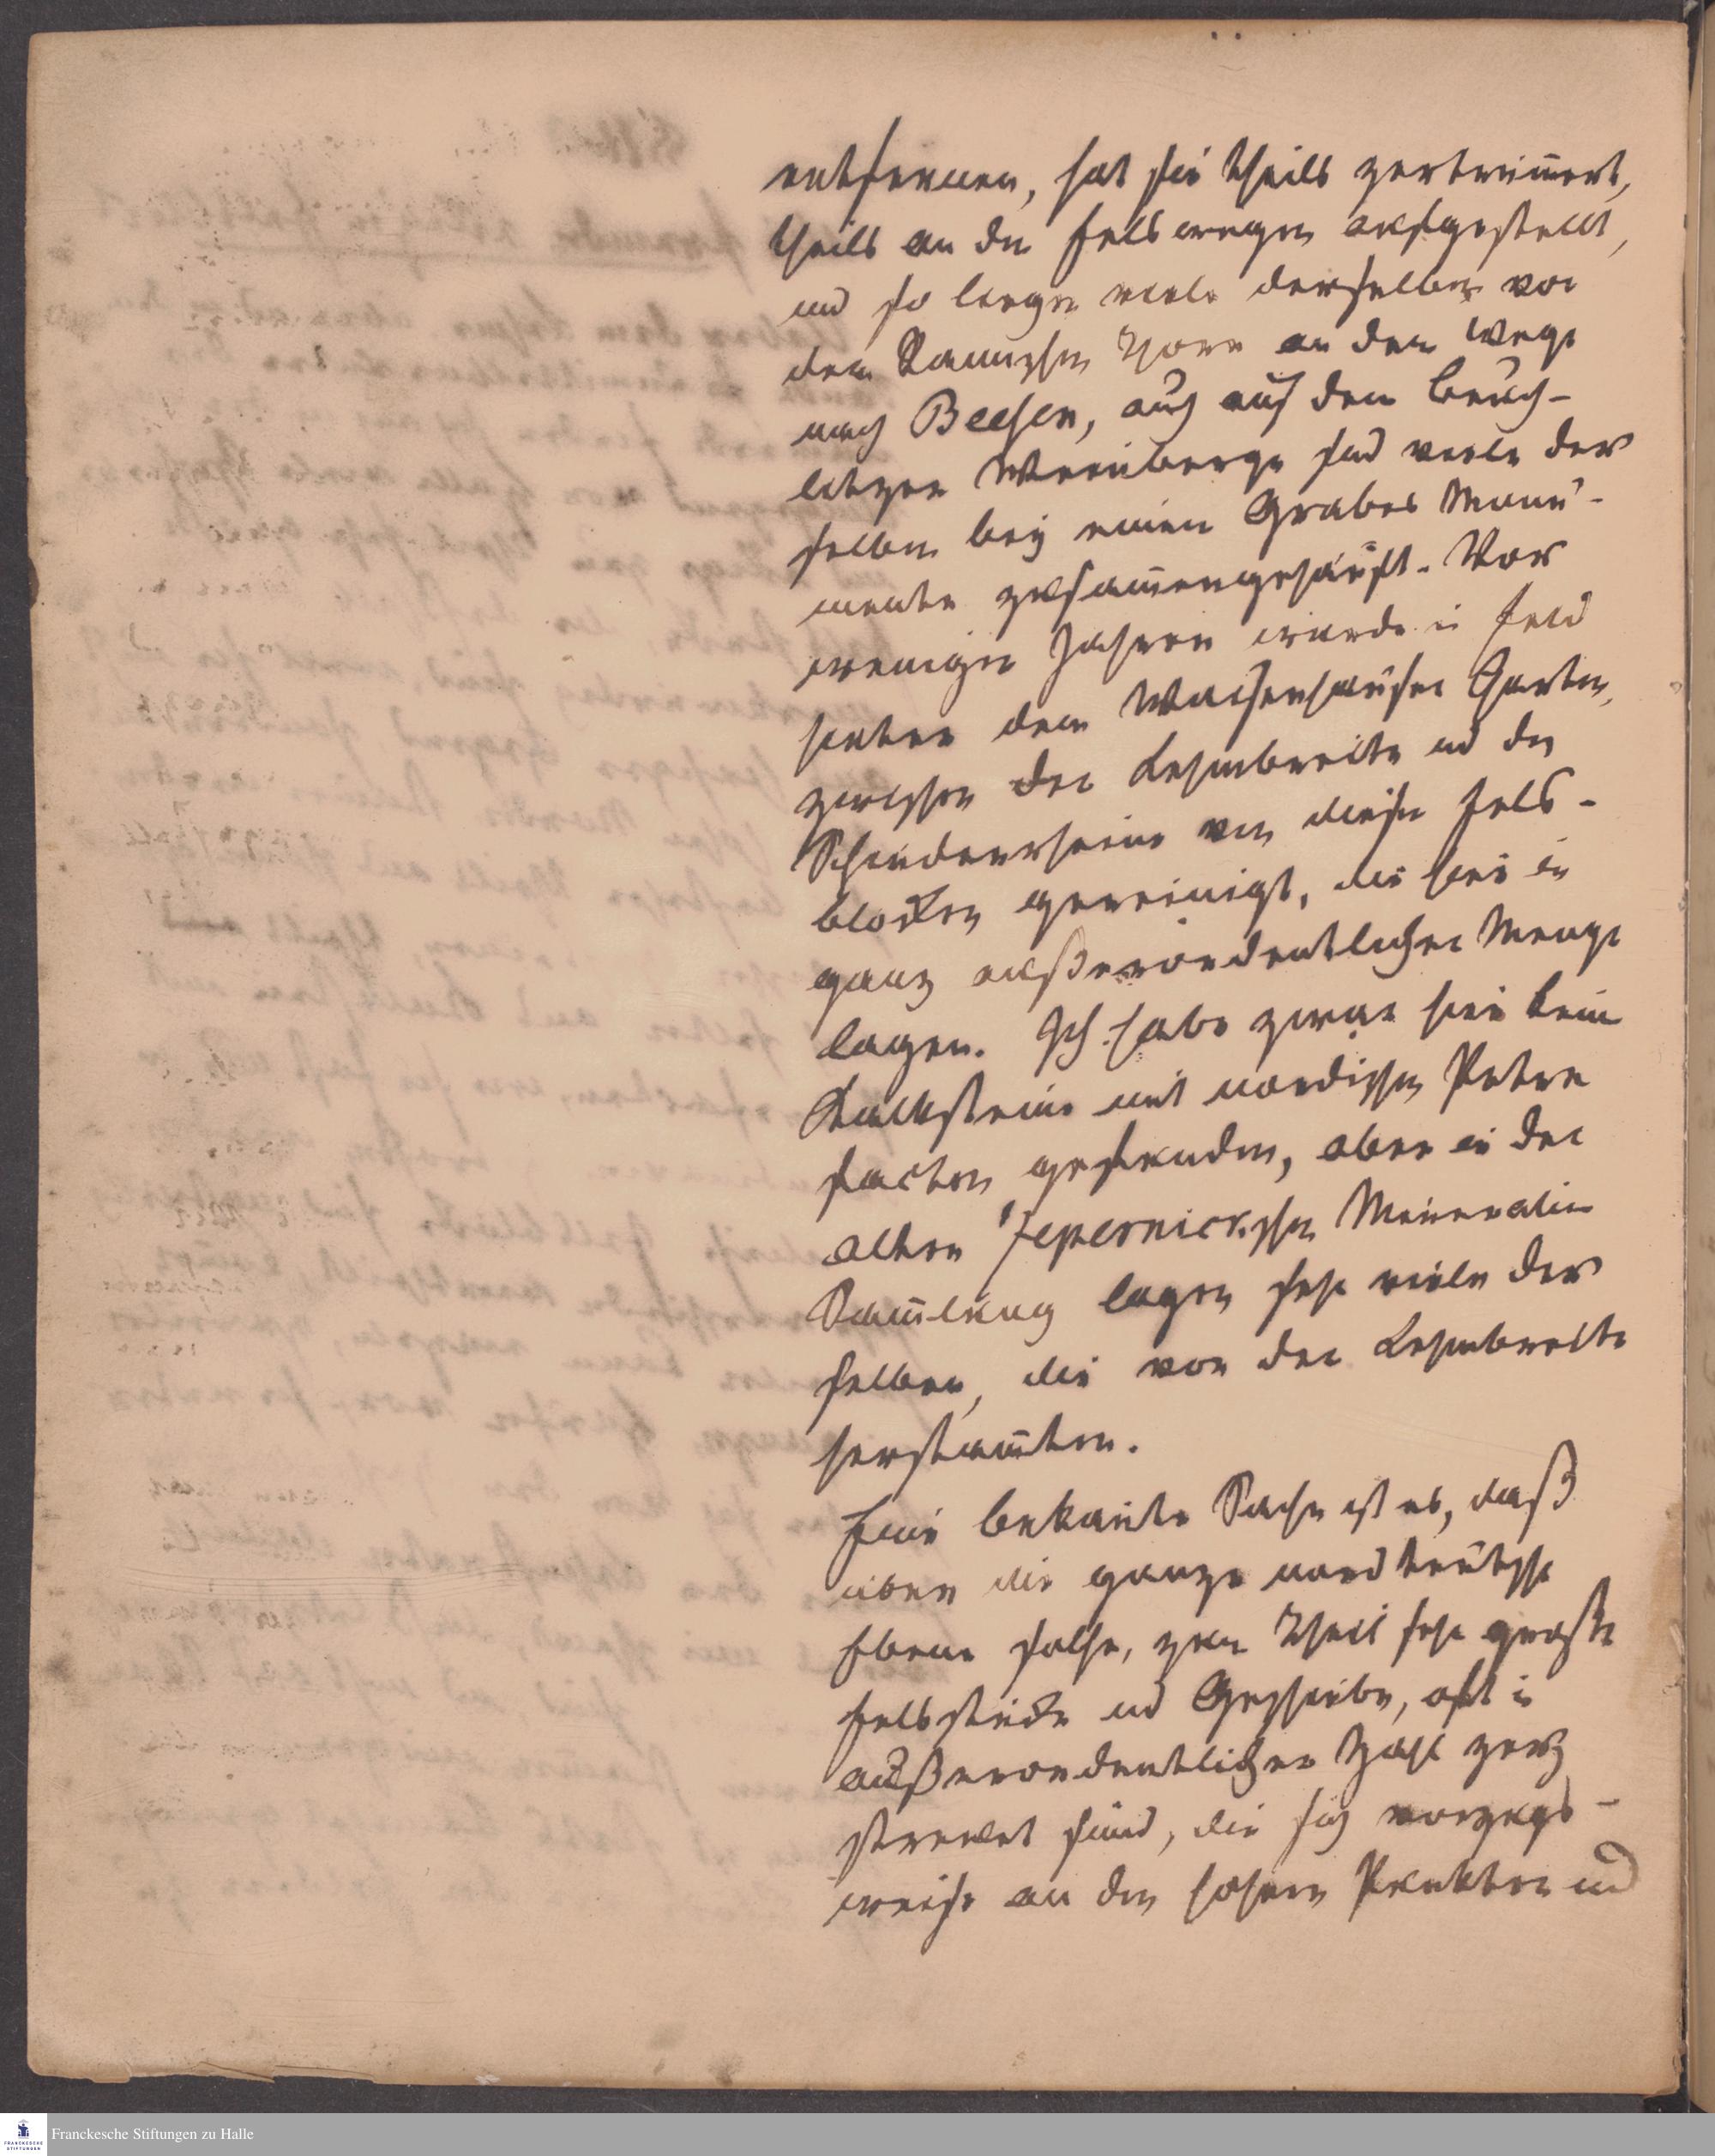 entfernen, hat sie theils zertrümert,
theils an den Feldwegen aufgestellt,
und so liegen viele derselben vor
dem Rannischen Thore an dem Wege
nach Beesen, auch auf dem Beuch-
litzer Weinberge sind viele der
selben bey einem Grabes Monu-
mente zusam̅engehäuft. Vor
wenigen Jahren wurde ein Feld
hinter dem Waisenhäuser Garten,
zwischen der Lehmbreite und der
von diesen Fels-
blöcken gereinigt, die hier in
ganz außerordentlicher Menge
lagen. Ich habe zwar hier keine
Kalksteine mit nordischen Petre
facten gefunden, aber in der
alten Jepernickschen Mineralien
Sam̅lung lagen sehr viele der
selben, die von der Lehmbreite
herstam̅ten.
Eine bekante Sache ist es, daß
über die ganze nordteutsche
Ebene solche, zum Theil sehr große
Felsstücke und Geschiebe, oft in
außerordentlicher Zahl zer
streuet sind, die sich vorzugs-
weise an den hohern Punkten und
Franckesche Stiftungen zu Halle